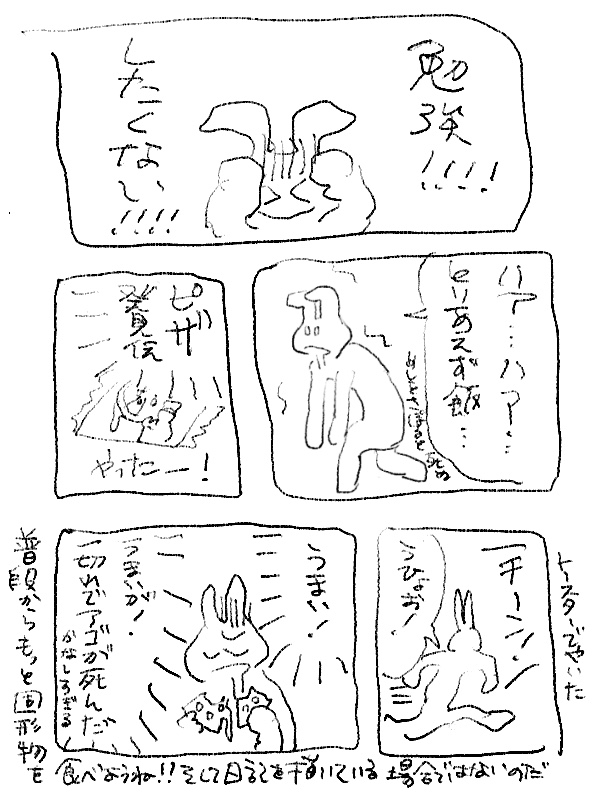 勉強!!!!
したくない!!!!
ハァ…ハァ…
とりあえず飯…
ピザ
発見
やったー!
チーン!
うひょお!
トースターでやいた
うまい!
うまいが!
一切れでアゴが死んだ
かなしすぎる
普段からもっと固形物を
食べようね!!そして日記を描いている場合ではないのだ